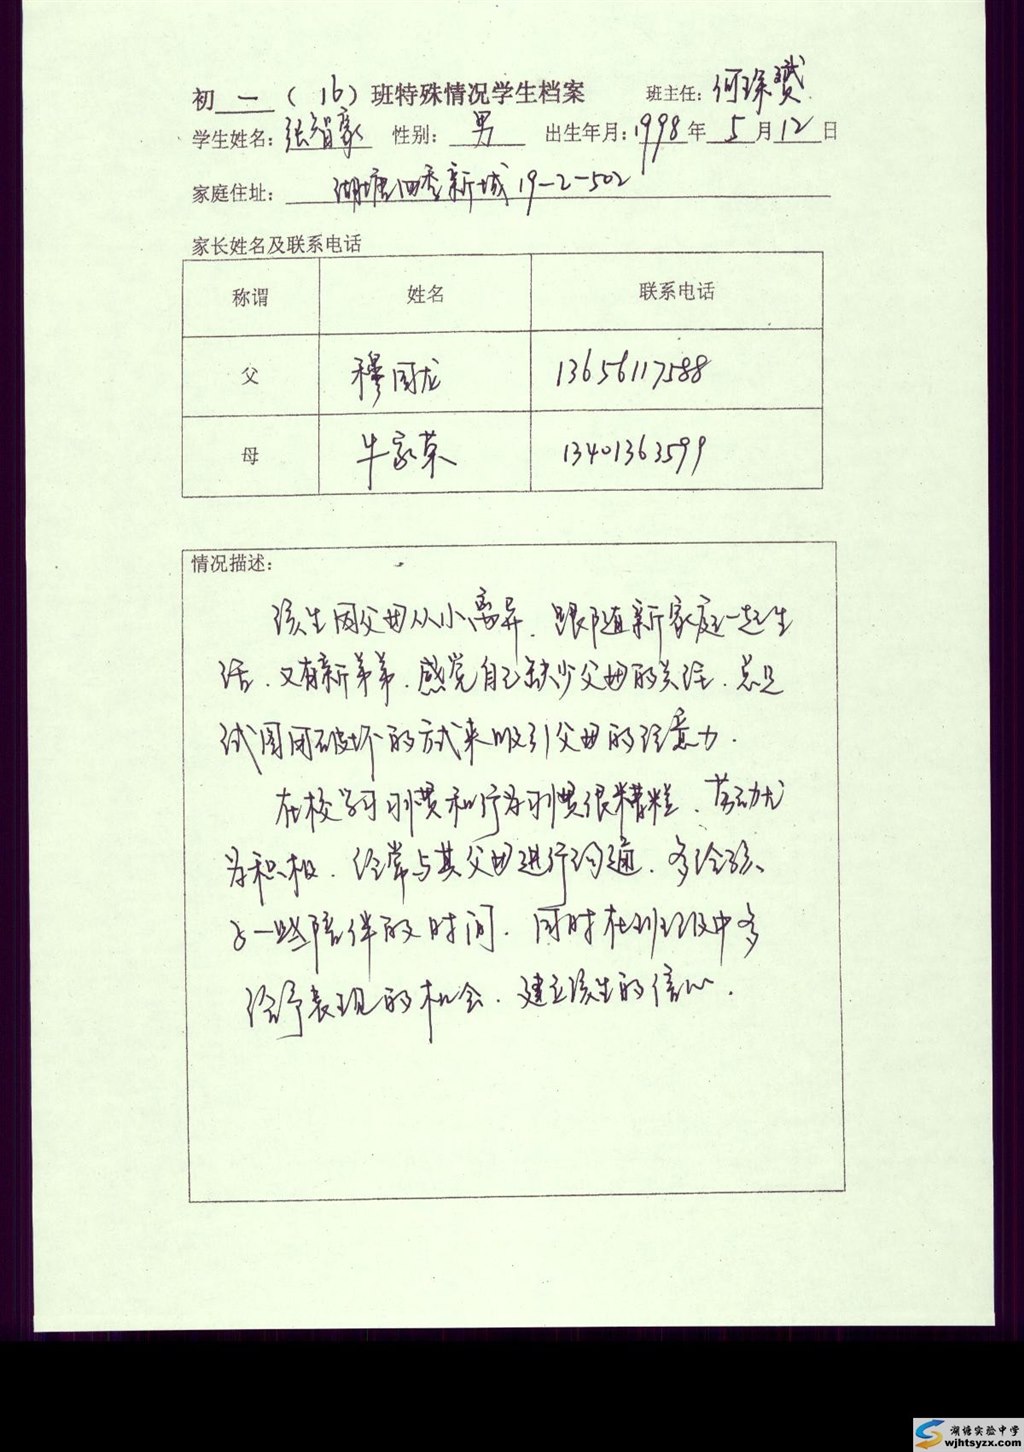 初 一 ( 16 ) 班特殊情况学生档案 班主任: 何琛
学生姓名: 张智豪 性别: 男 出生年月: 1998 年 5 月 12 日
家庭住址: 湖塘四季新城 19-2-502
家长姓名及联系电话
称谓 姓名 联系电话
父 穆国龙 13656117588
母 牛家英 13401363599
情况描述:
该生因父母从小离异、跟随新家庭一起生
活、又有新弟弟、感觉自己缺少父母的关注、总是
试图用破坏的方式来吸引父母的注意力.
在校学习习惯和行为习惯很糟糕、劳动尤
为积极. 经常与其父母进行沟通、多给孩
子一些陪伴的时间. 同时在班级中多
给予表现的机会、建立该生的信心.
湖塘实验中学
wjhtsyzx.com